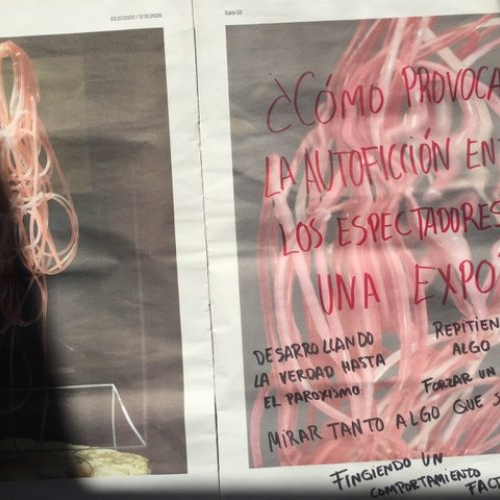 02.07.2020 / 11.10.2020
Sala 02
¿CÓMO PROVOCA
LA AUTOFICCIÓN EN
LOS ESPECTADORES
UNA EXPO
DESARROLLANDO
LA VERDAD HASTA
EL PAROXISMO
REPITIEN
ALGO
FORZAR UN
MIRAR TANTO ALGO QUE S
FINGIENDO UN
COMPORTAMIENTO
FAC